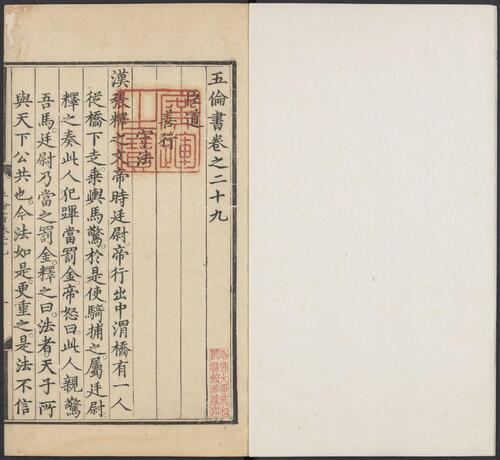 五倫書卷之二十九
臣道
善行
守法
漢張釋之文帝時廷尉帝行出中渭橋有一人
從橋下走乘輿馬驚於是使騎捕之屬廷尉
釋之奏此人犯蹕當罰金帝怒曰此人親驚
吾馬廷尉乃當之罰金釋之曰法者天子所
與天下公共也今法如是更重之是法不信